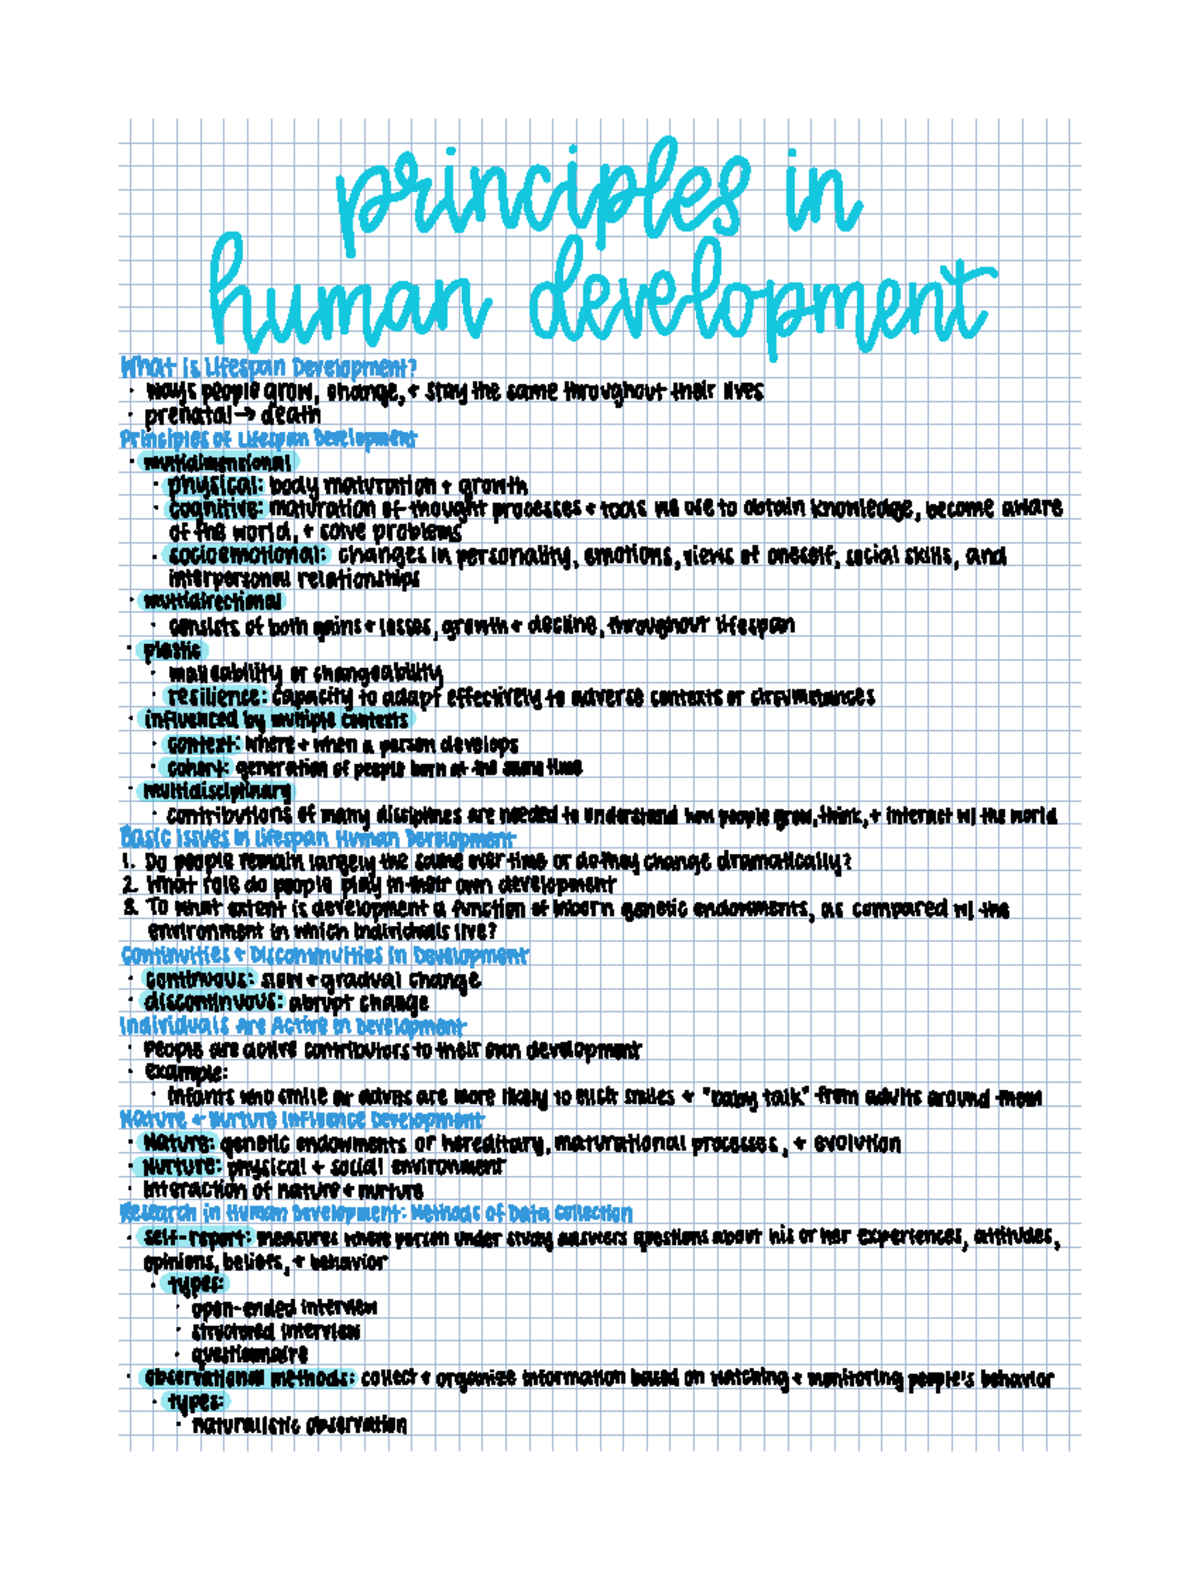 principles in
human development
What is Lifespan Development?
· ways people grow, change, + stay the same throughout their lives
· prenatal → death
Principles of Lifespan Development
· multidimensional
· physical: body maturation + growth
· cognitive: maturation of thought processes + tools we use to obtain knowledge, become aware
of the world, + solve problems
· socioemotional: changes in personality, emotions, views of oneself, social skills, and
interpersonal relationships
· multidirectional
· consists of both gains + losses, growth + decline, throughout lifespan
· plastic
· malleability or changeability
· resilience: capacity to adapt effectively to adverse contexts or circumstances
· influenced by multiple contexts
· context: where + when a person develops
· cohort: generation of people born at the same time
· multidisciplinary
· contributions of many disciplines are needed to understand how people grow, think, + interact w/ the world
Basic Issues in Lifespan Human Development
1. Do people remain largely the same over time or do they change dramatically?
2. What role do people play in their own development
3. To what extent is development a function of inborn genetic endowments, as compared w/ the
environment in which individuals live?
Continuities + Discontinuities in Development
· continuous: slow + gradual change
· discontinuous: abrupt change
Individuals Are Active in Development
· People are active contributors to their own development
· example:
· infants who smile at adults are more likely to elicit smiles + "baby talk" from adults around them
Nature + Nurture Influence Development
· Nature: genetic endowments or hereditary, maturational processes, + evolution
· Nurture: physical + social environment
· Interaction of nature + nurture
Research in Human Development: Methods of Data Collection
· self-report: measures where person under study answers questions about his or her experiences, attitudes,
opinions, beliefs, + behavior
· types:
· open-ended interview
· structured interview
· questionnaire
· observational methods: collect + organize information based on watching + monitoring people's behavior
· types:
· naturalistic observation